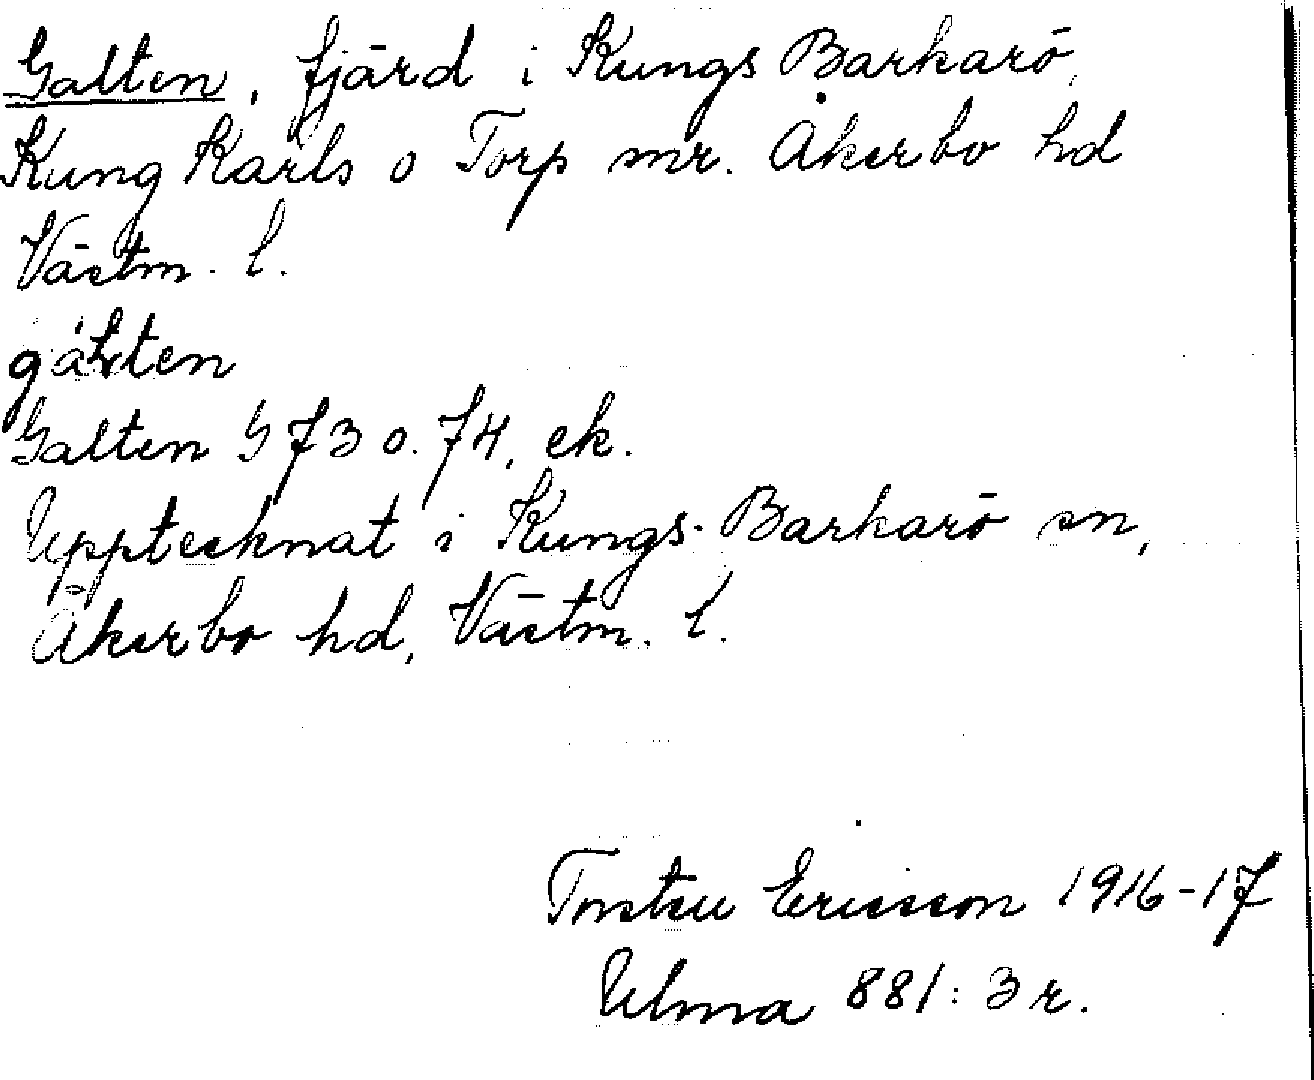 Galten, fjärd i Kungs Barkarö,
Kung Karls o Torp snr. Åkerbo hd
Västm. l.
Galten G 73 o. 74, ek.
Upptecknat i Kungs-Barkarö sn,
Åkerbo hd, Västm. l.
Torsten Ericsson 1916-17
Ulma 881:3 r.